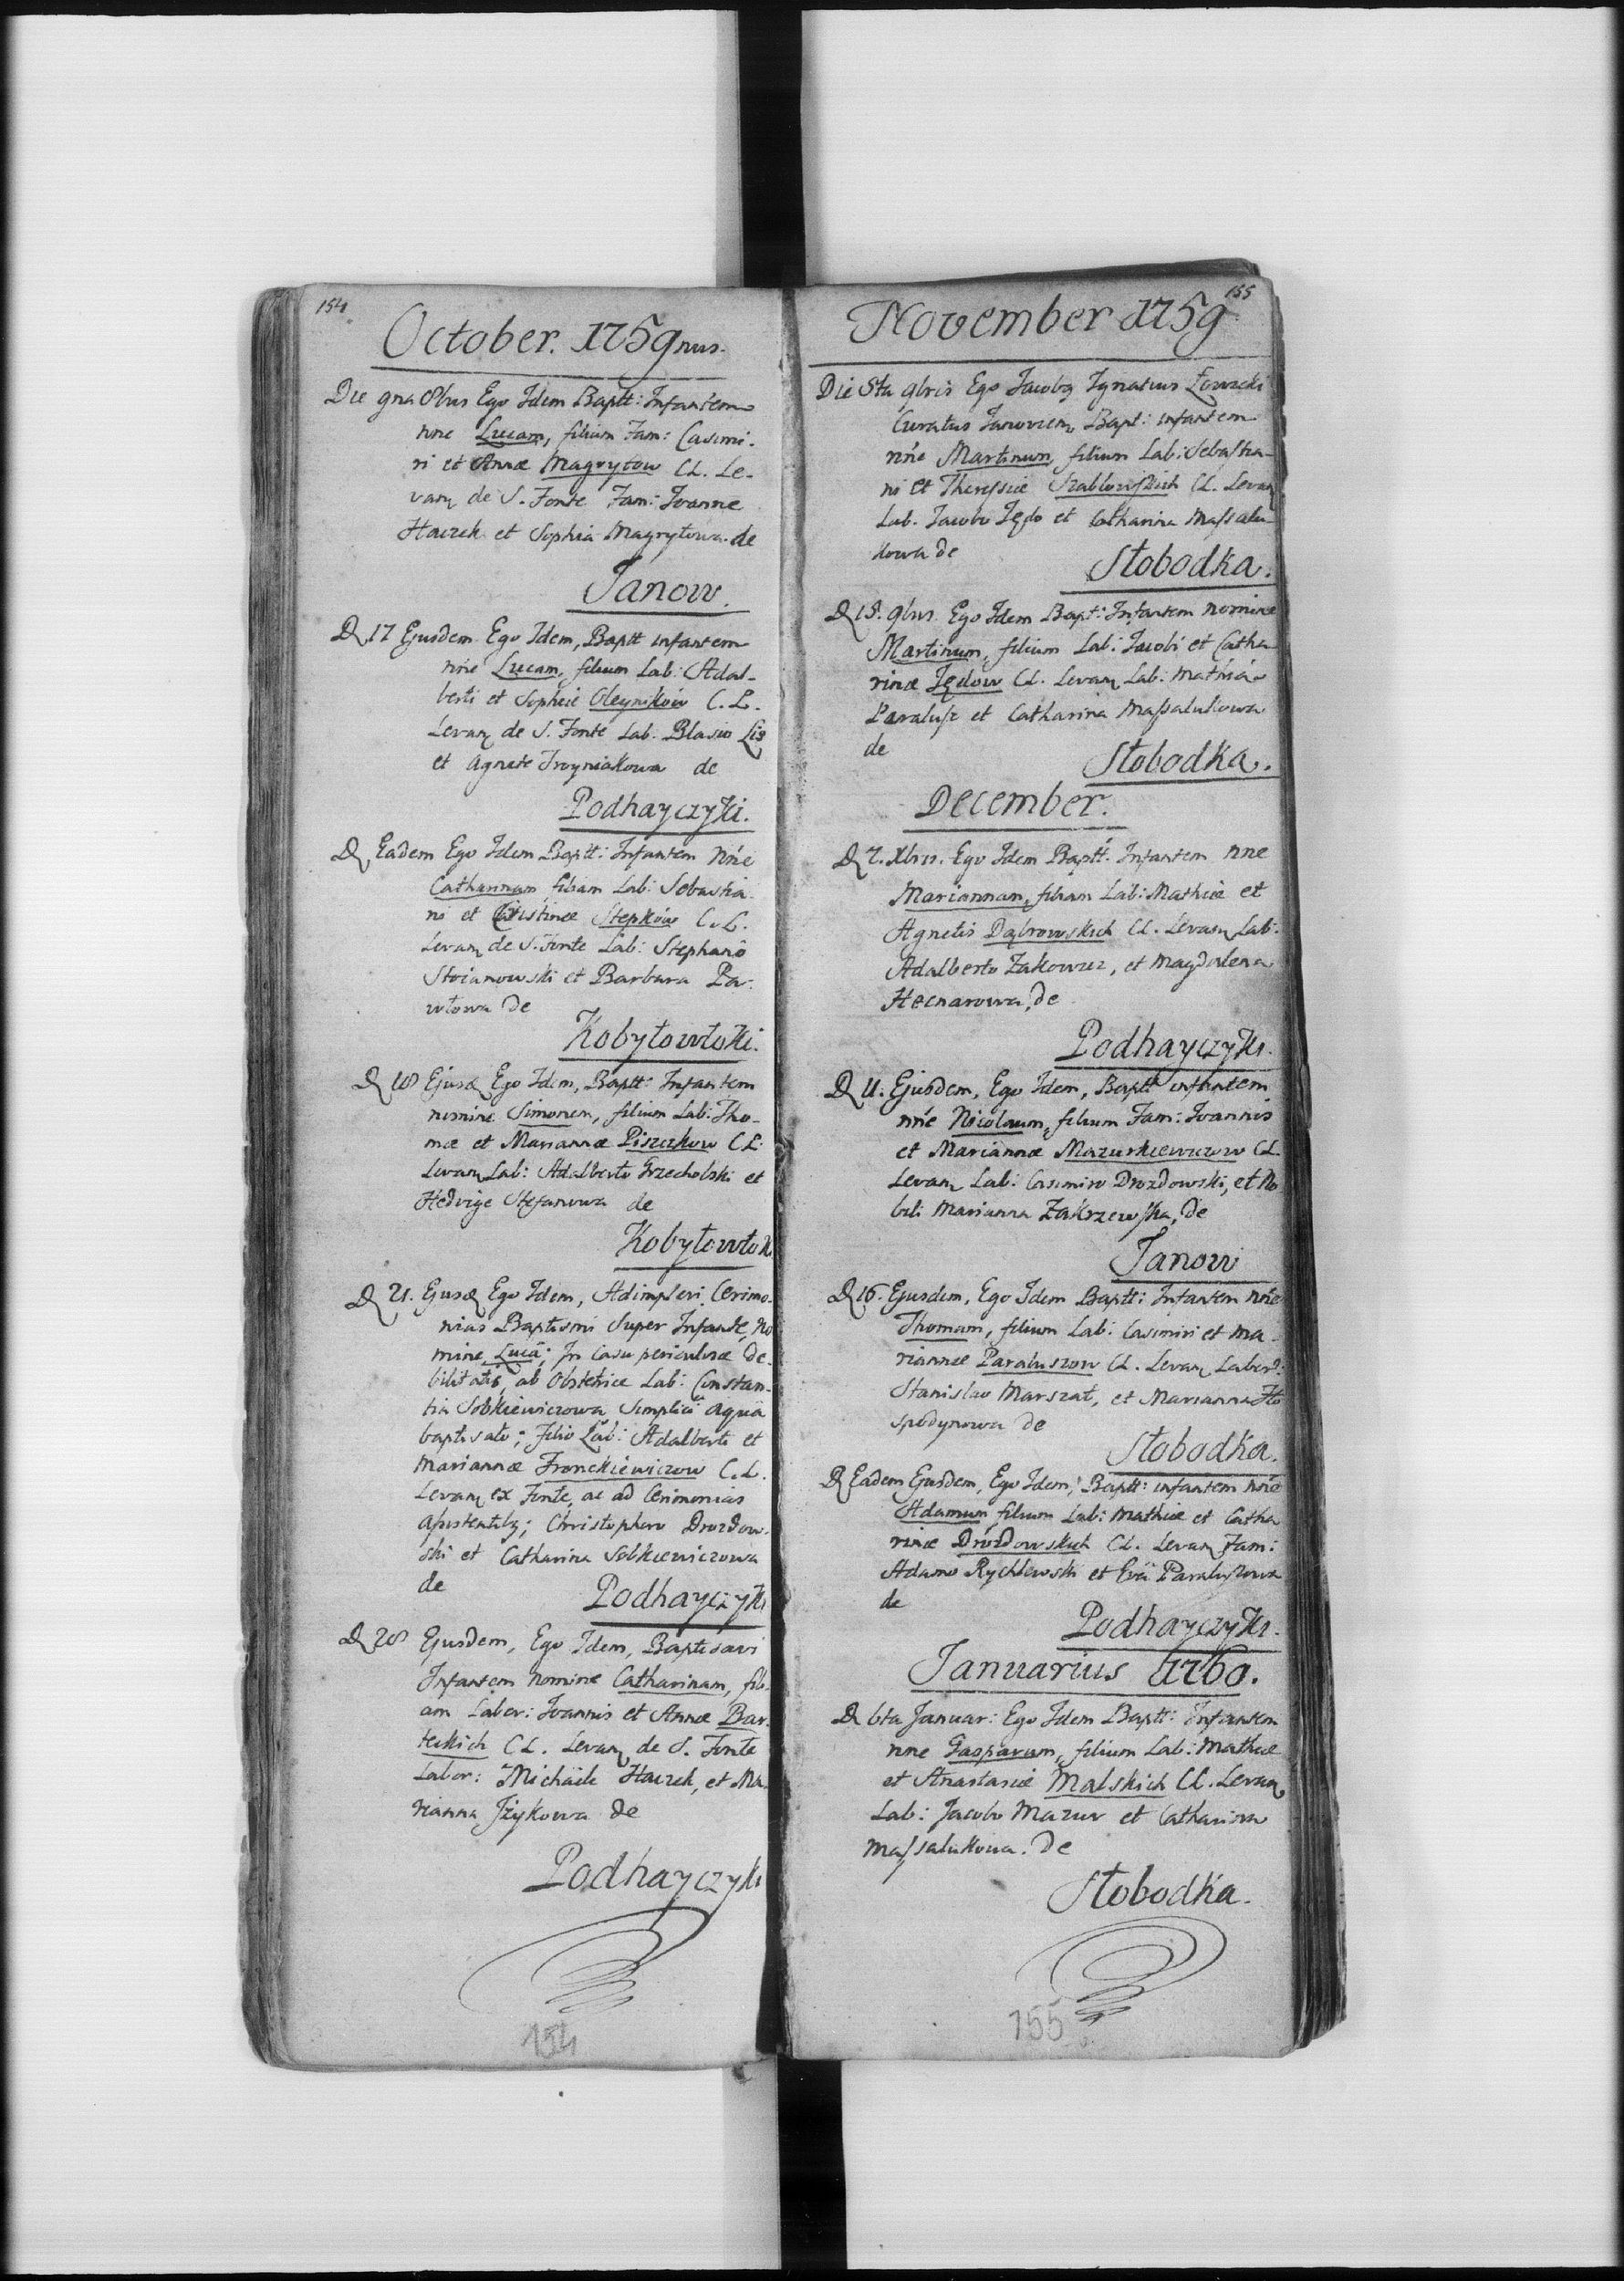 154
October. 1759nus.
Die 9na 8bris Ego Idem Baptt: Infantem
nne Lucam, filium Fam: Casimi-
ri et Annæ Magrytow CL. Le-
varz de S. Fonte Fam: Joanne
Haczek et Sophia Magrytowa. de
Janow.
D 17 Ejusdem Ego Idem, Baptt infantem
nne Lucam, filium Lab: Adal-
berti et Sophiæ Oleynikow C.L.
Levarz de S. Fonte Lab. Blasio Lis
et Agnete Troyniakowa de
Podhayczyki.
D Eadem Ego Idem Baptt: Infantem nne
Catharinam filiam Lab: Sebastia
ni et Cristinæ Stepków C.L.
Levarz de S. Fonte Lab: Stephano
Stoianowski et Barbara Pa-
włowa de
Kobyłowłoki.
D 18 Ejusd Ego Idem, Baptt: Infantem
nomine Simonem, filium Lab: Tho-
mæ et Mariannæ Piszczkow CL.
Levarz Lab: Adalberto Grzecholski et
Hedvige Stefanowa de
Kobyłowłok
D 21. Ejusd Ego Idem, Adimplevi Cerimo-
nias Baptismi Super Infante, no
mine Lucâ; In casu periculosæ de-
bilitatis, ab Obstetrice Lab: Constan-
tia Sobkiewiczowa Simplici aquâ
baptisato; Filio Lab: Adalberti et
Mariannæ Fronckiewiczow C.L.
Levarz ex Fonte, ac ad Cerimonias
assistentibz; Christophoro Drozdow-
ski et Catharina Sobkiewiczowa
de
Podhayczyki
D 28 Ejusdem, Ego Idem, Baptisavi
Infantem nomine Catharinam, fili-
am Labor: Joannis et Annæ Bar-
teckich CL. Levarz de S. Fonte
Labor: Michäele Haczek, et Ma-
rianna Jżykowa de
Podhayczyki
154
155
November 1759
Die 8ta 9bris Ego Jacobg Ignatius Łowicki
Curatus Janovien, Bapt: infantem
nne Martinum, filium Lab: Sebastia-
ni et Theressiæ Szablowskich CL. Levarz
Lab. Jacobo Jędo et Catharina Massalu-
kowa de
Słobodka.
D 15. 9bris Ego Idem Bapt: Infantem nomine
Martinum, filium Lab: Jacobi et Catha
rinæ Jędow CL. Levarz Lab: Mathia
Paralusz et Catharina Massalukowa
de
Słobodka.
December.
D 7. Xbris. Ego Idem Baptt: Infantem nne
Mariannam, filiam Lab: Mathiæ et
Agnetis Dąbrowskich CL. Levarz Lab:
Adalberto Zakowicz, et Magdalena
Hecnarowa, de
Podhayczyki.
D 11. Ejusdem, Ego Idem, Baptt infantem
nne Nicolaum, filium Fam: Joannis
et Mariannæ Mazurkiewiczow CL
Levarz Lab: Casimiro Drozdowski, et No
bili Marianna Zakrzewska, de
Janow
D 16. Ejusdem, Ego Idem Baptt: Infantem nne
Thomam, filium Lab: Casimiri et Ma-
riannæ Paraluszow CL. Levarz Labor:
Stanislao Marszał, et Marianna Ho
spodynowa de
Słobodka.
D Eadem Ejusdem, Ego Idem, Baptt: infantem nne
Adamum, filium Lab: Mathiæ et Catha
rinæ Drozdowskich CL. Levarz Fam:
Adamo Rychlewski et Evâ Paraluszowa
de
Podhayczyki.
Januarius 1760.
D 6ta Januar: Ego Idem Baptt: Infantem
nne Gasparum, filium Lab: Mathiæ
et Anastasiæ Malskich CL. Levarz
Lab: Jacobo Mazur et Catharina
Massalukowa. de
Słobodka.
155